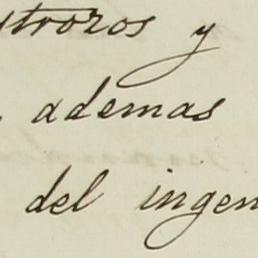 strozos y
ademas
del ingen